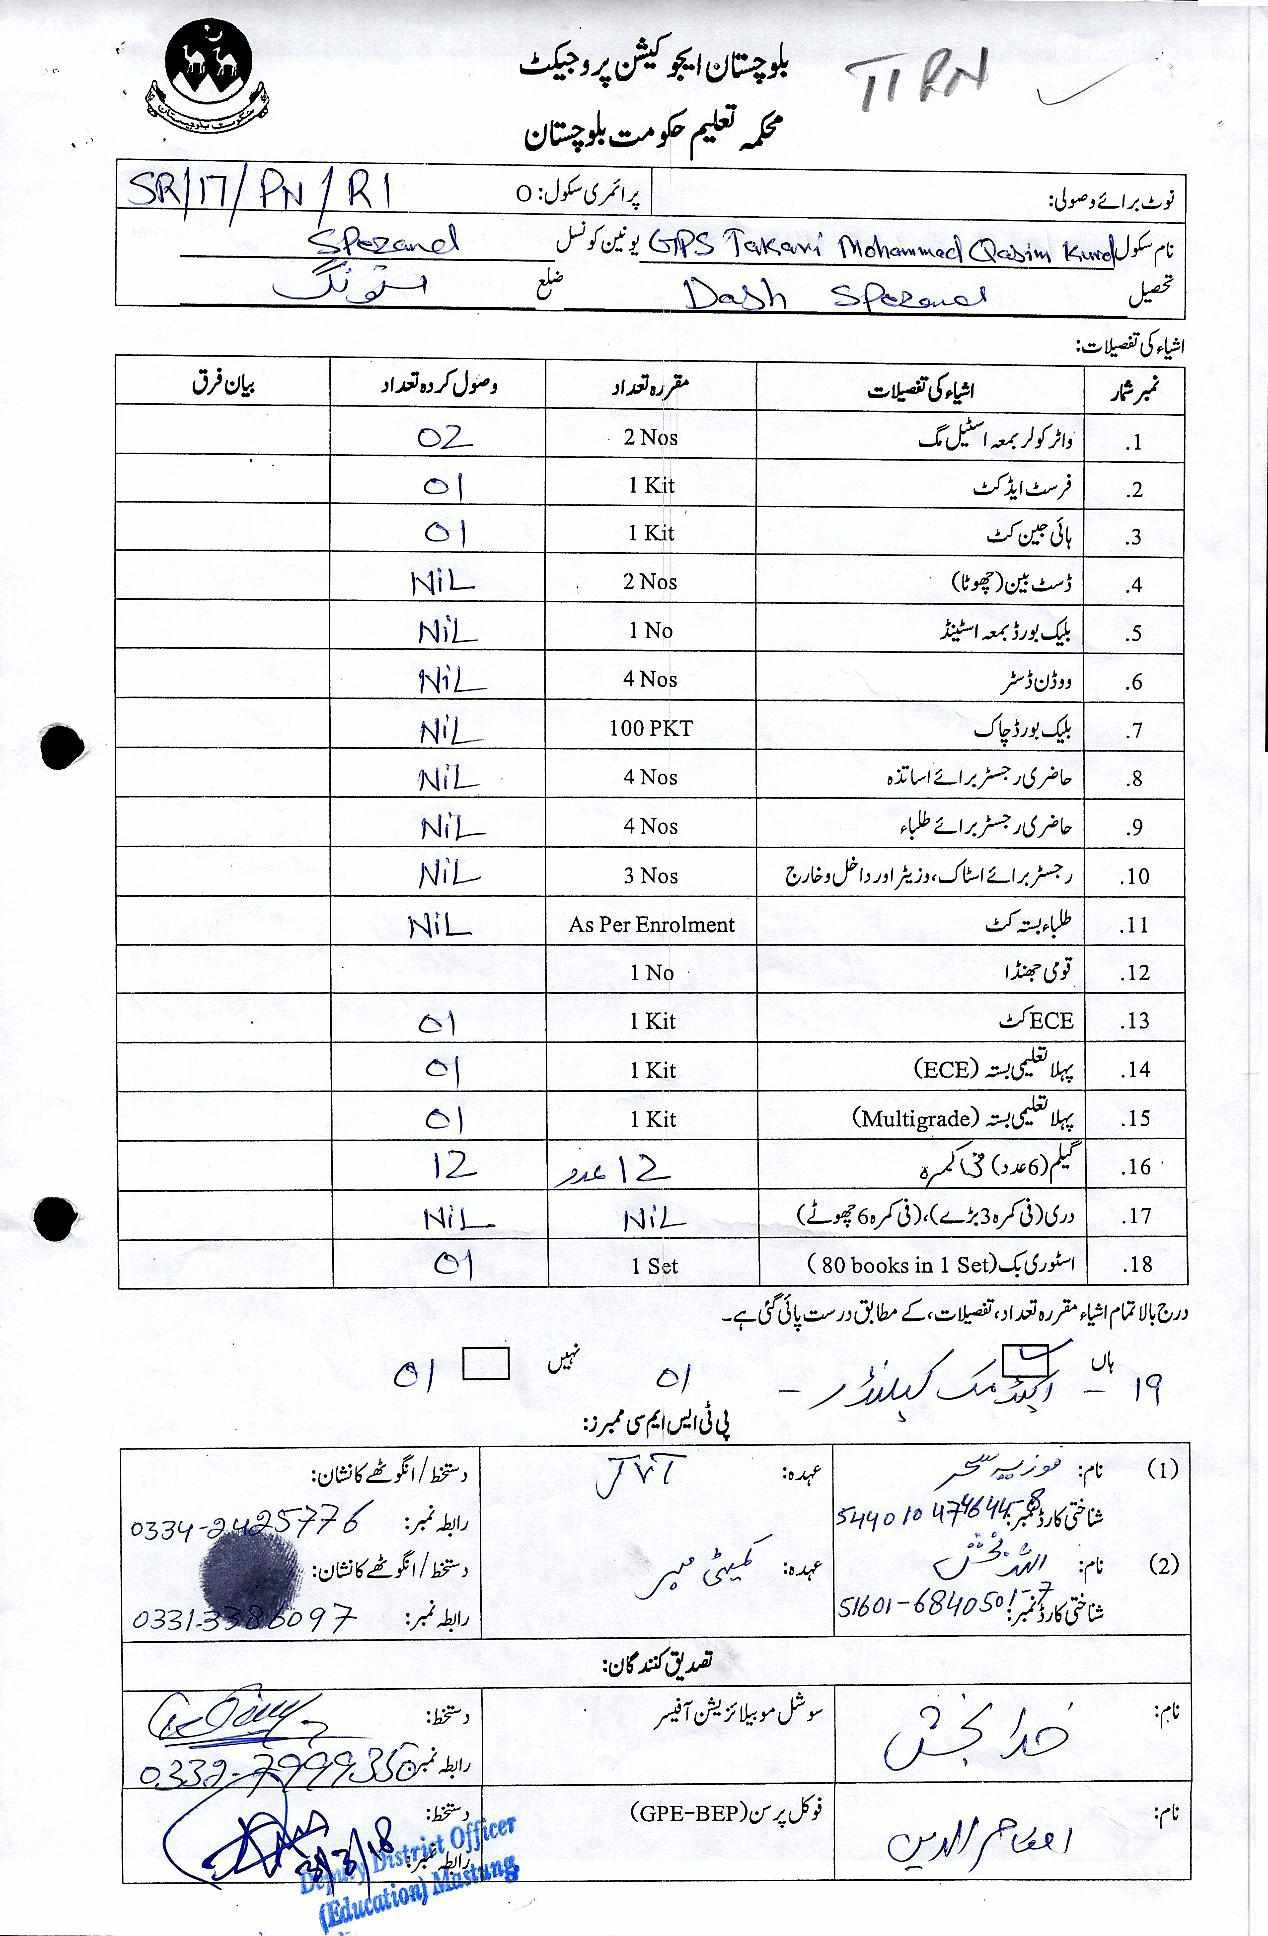 بلوچستان ایجوکیشن پروجیکٹ
TIRN
محکمہ تعلیم حکومت بلوچستان
حکومت بلوچستان
نوٹ برائے وصولی: پرائمری سکول: O SR/17/PN/R1
نام سکول GPS Takari Mohammad Qasim Kurd یونین کونسل Spezand
تحصیل Dash Spezand ضلع مستونگ
اشیاء کی تفصیلات:
نمبر شمار اشیاء کی تفصیلات مقررہ تعداد وصول کردہ تعداد بیان فرق
1. واٹر کولر بمعہ اسٹیل مگ 2 Nos 02
2. فرسٹ ایڈ کٹ 1 Kit 01
3. ہائی جین کٹ 1 Kit 01
4. ڈسٹ بین (چھوٹا) 2 Nos NiL
5. بلیک بورڈ بمعہ اسٹینڈ 1 No NiL
6. ووڈن ڈسٹر 4 Nos NiL
7. بلیک بورڈ چاک 100 PKT NiL
8. حاضری رجسٹر برائے اساتذہ 4 Nos NiL
9. حاضری رجسٹر برائے طلباء 4 Nos NiL
10. رجسٹر برائے اسٹاک، وزیٹر اور داخل و خارج 3 Nos NiL
11. طلباء بستہ کٹ As Per Enrolment NiL
12. قومی جھنڈا 1 No
13. ECE کٹ 1 Kit 01
14. پہلا تعلیمی بستہ (ECE) 1 Kit 01
15. پہلا تعلیمی بستہ (Multigrade) 1 Kit 01
16. گیلم (6 عدد) فی کمرہ 12 عدد 12
17. دری (فی کمرہ 3 بڑے)، (فی کمرہ 6 چھوٹے) NiL NiL
18. اسٹوری بک (80 books in 1 Set) 1 Set 01
درج بالا تمام اشیاء مقررہ تعداد، تفصیلات، کے مطابق درست پائی گئی ہے۔
ہاں نہیں
19 - اکیڈمک کیلنڈر - 01 01
پی ٹی ایس ایم سی ممبرز:
(1) نام: فوزیہ سحر عہدہ: JVT دستخط / انگوٹھے کا نشان:
شناختی کارڈ نمبر: رابطہ نمبر: 0334-2425776
(2) نام: اللہ بخش عہدہ: کمیٹی ممبر دستخط / انگوٹھے کا نشان:
شناختی کارڈ نمبر: 51601-6840501-7 رابطہ نمبر: 0331-3386097
تصدیق کنندگان:
نام: خدا بخش سوشل موبیلائزیشن آفیسر دستخط:
رابطہ نمبر: 0332-7999350
نام: فوکل پرسن (GPE-BEP) دستخط:
رابطہ نمبر:
Deputy District Officer
(Education) Mastung